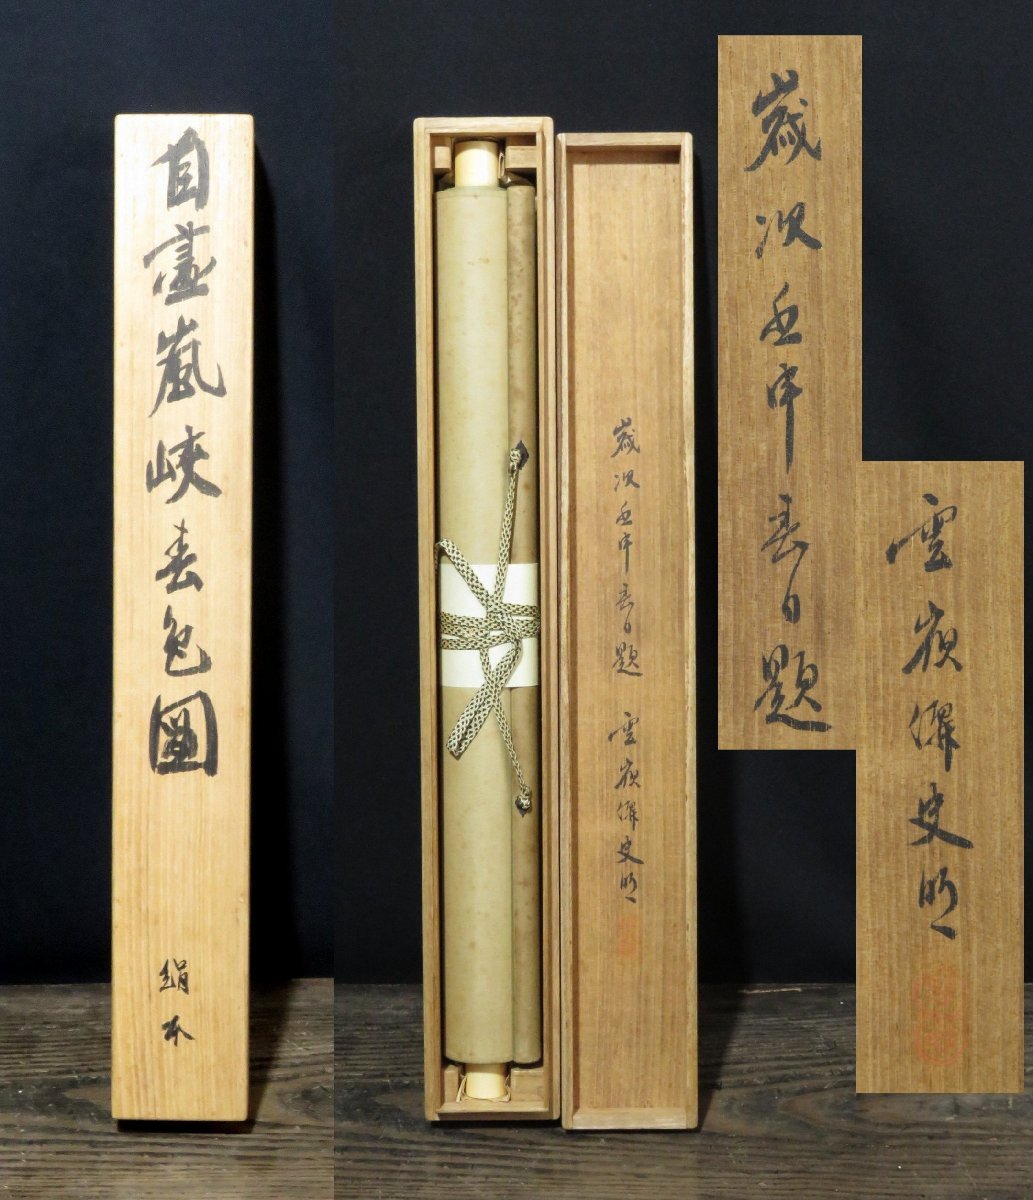 自畫嵐峽春色圖
絹本
歳次壬申春日題 雲嶺僊史
歳次壬申春日題
雲嶺僊史